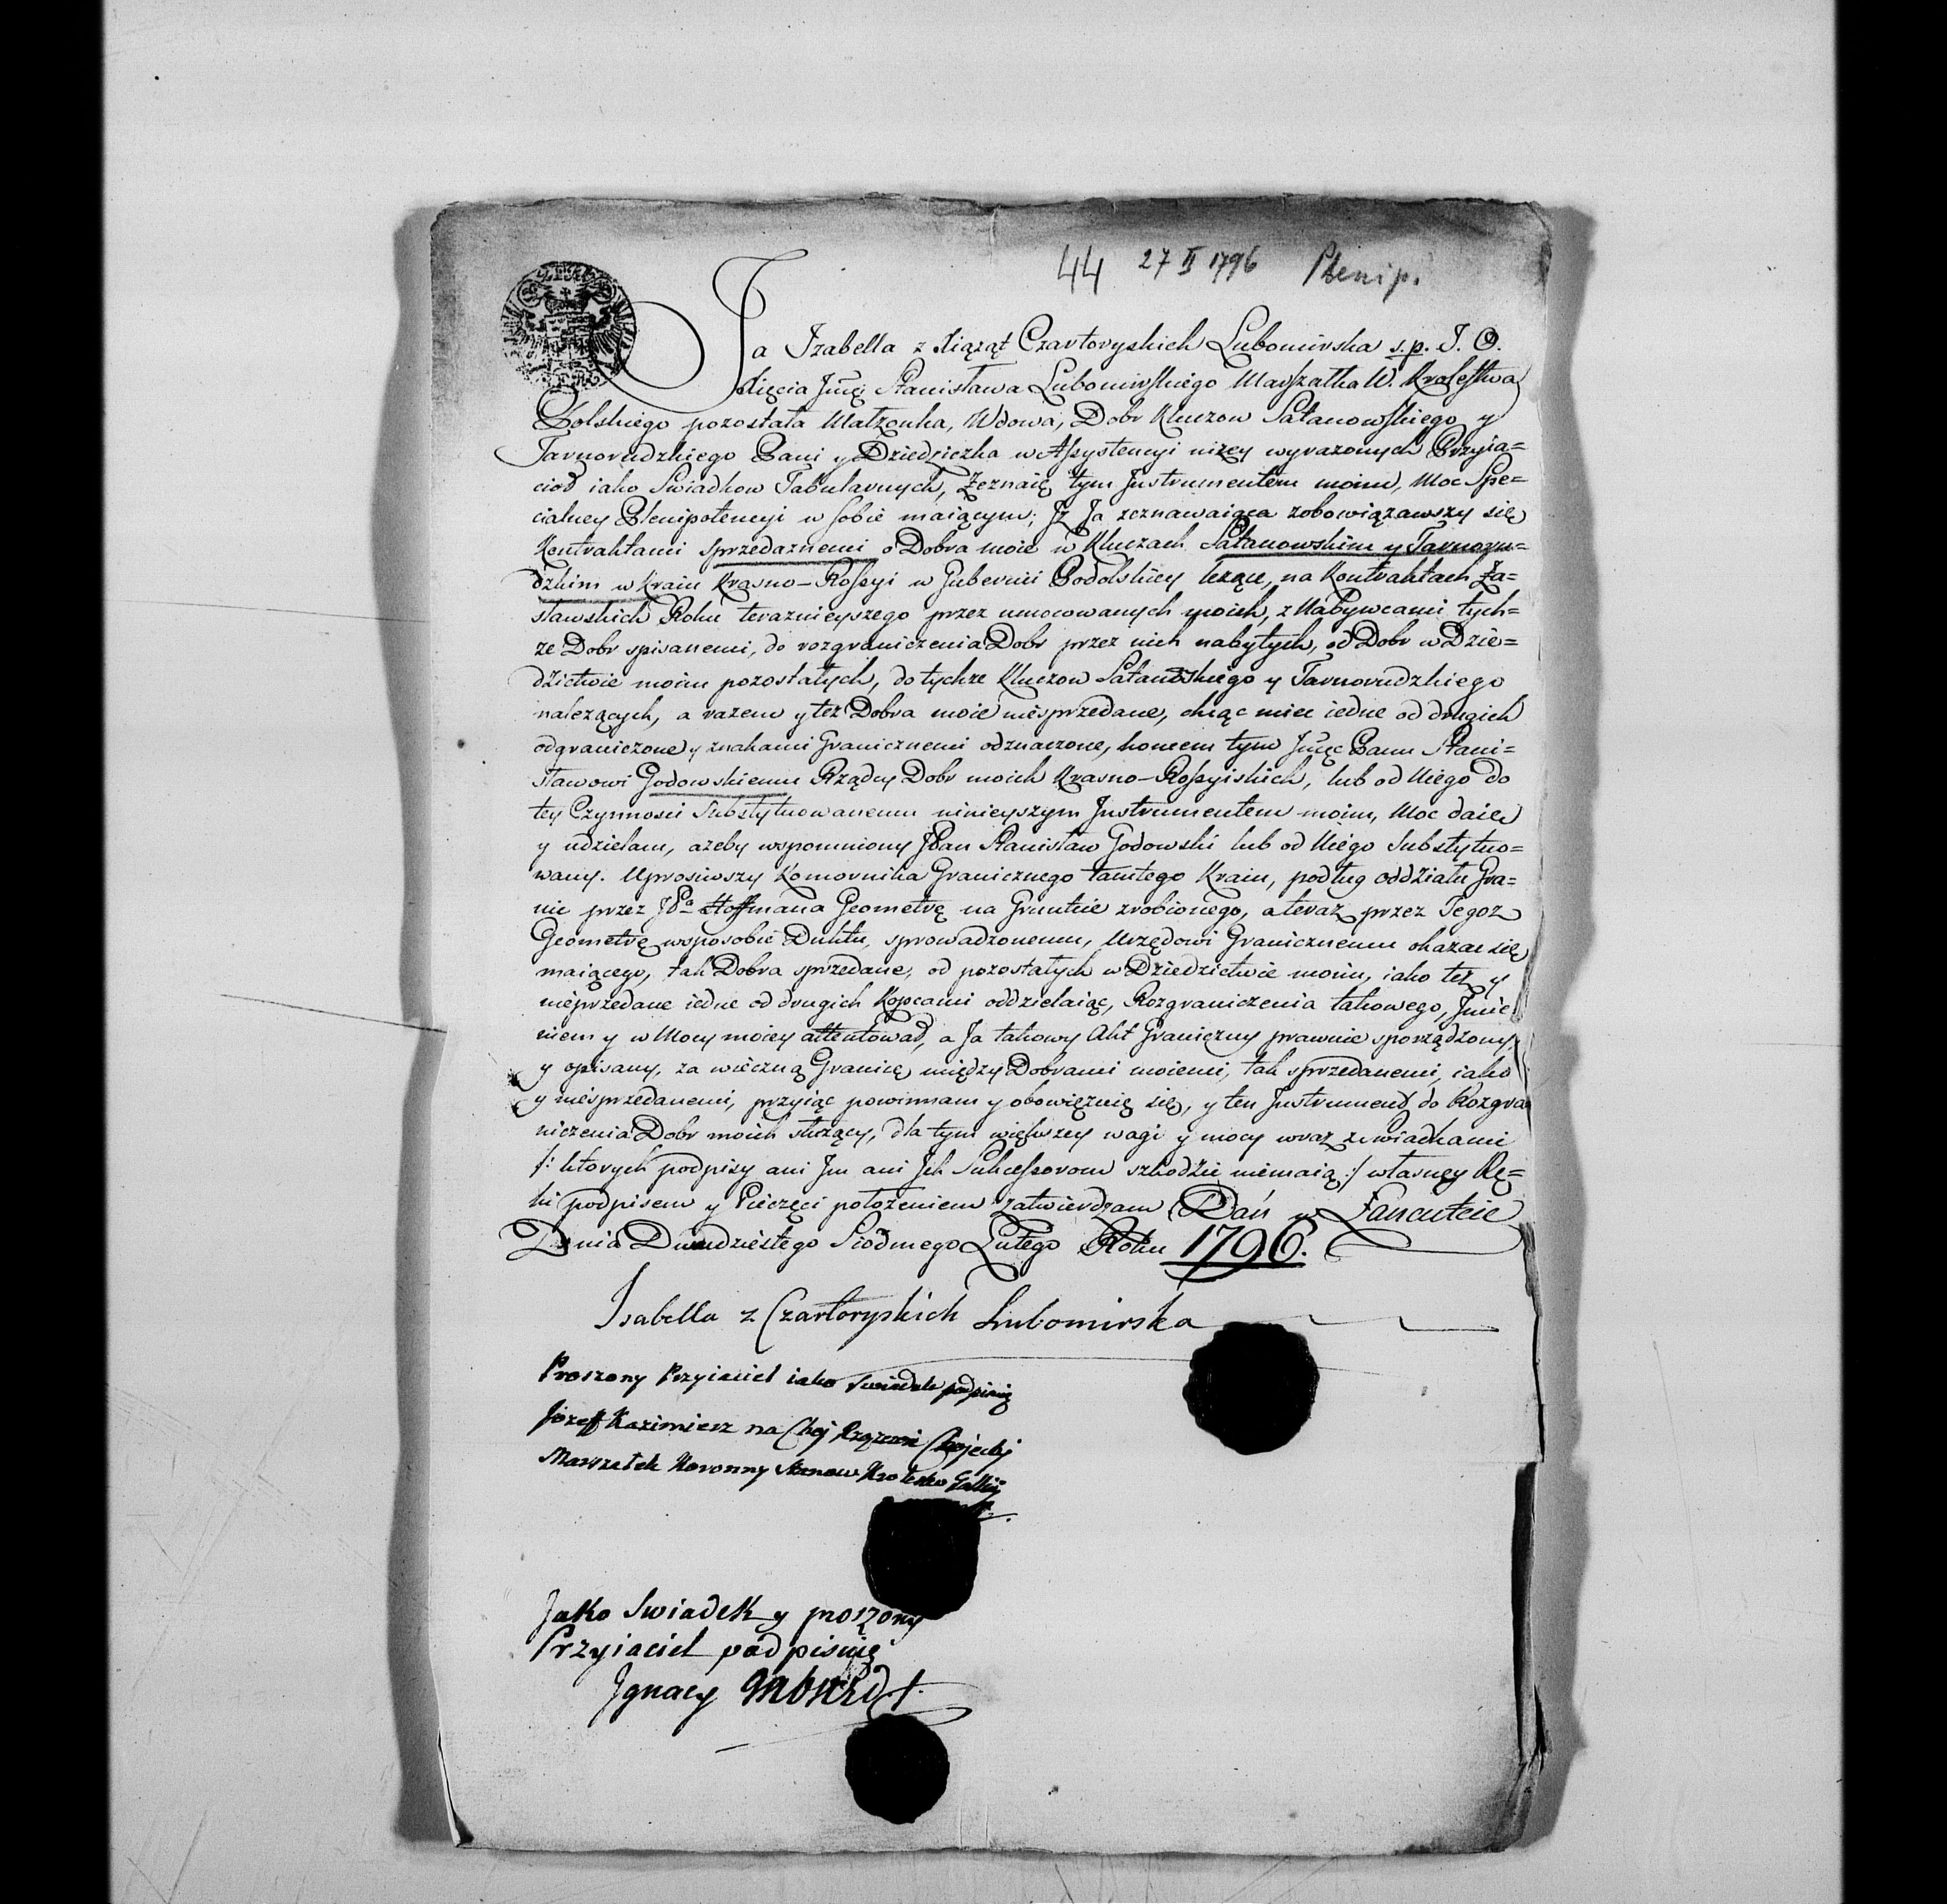 44 27 II 1796 Plenip.
Ja Izabella z Xiążąt Czartoryskich Lubomirska s.p. J. O.
Xięcia Jmć Stanisława Lubomirskiego Marszałka W. Krolestwa
Polskiego pozostała Małżonka, Wdowa, Dobr Kluczow Satanowskiego y
Tarnorudzkiego Pani y Dziedziczka w Assystencyi niżey wyrażonych Przyia=
cioł iako Swiadkow Tabularnych, Zeznaię tym Instrumentem moim, Moc Spe=
cialney Plenipotencyi w sobie maiącym; Iż Ja zeznawaiąca zobowiązawszy się
Kontraktami sprzedaznemi o Dobra moie w Kluczach Satanowskim y Tarnoru=
dzkim w Kraiu Krasno-Rossyi w Gubernii Podolskiey leżące, na Kontraktach Za=
sławskich Roku teraznieyszego przez umocowanych moich, z Nabywcami tych=
że Dobr spisanemi, do rozgraniczenia Dobr przez nich nabytych, od Dobr w Dzie=
dzictwie moim pozostałych, do tychże Kluczow Satanowskiego y Tarnorudzkiego
należących, a razem y też Dobra moie niesprzedane, chcąc mieć iedne od drugich
odgraniczone y znakami Granicznemi odznaczone, koncem tym Jmć Panu Stani=
sławowi Godowskiemu Rządcy Dobr moich Krasno-Rossyiskich, lub od Niego do
tey Czynnosci Substytuowanemu ninieyszym Instrumentem moim, Moc daię
y udzielam, ażeby wspomniony JPan Stanisław Godowski lub od Niego Substytuo=
wany. Uprosiwszy Komornika Granicznego tamtego Kraiu, podług oddziału Gra=
nic przez JPa Hoffmana Geometrę na Gruncie zrobionego, a teraz przez Tegoż
Geometrę wsposobie Duktu, sprowadzonemu, Urzędowi Granicznemu okazać się
maiącego, tak Dobra sprzedane, od pozostałych w Dziedzictwie moim, iako też y
nieprzedane iedne od drugich Kopcami oddzielaiąc, Rozgraniczenia takowego, Jmie
niem y w Mocy moiey attentował, a Ja takowy Akt Graniczny prawnie sporządzony,
y opisany, za wieczną Granicę między Dobrami moiemi, tak sprzedanemi, iako
y niesprzedanemi, przyiąć powinnam y obowięzuię się, y ten Instrument do Rozgra
niczenia Dobr moich służący, dla tym większey wagi y mocy wraz z swiadkami
/: ktorych podpisy ani Im ani Ich Sukcessorom szkodzic niemaią :/ własney Rę=
ki podpisem y Pieczęci położeniem zatwierdzam Dań w Łancutcie
Dnia Dwudziestego Siodmego Lutego Roku 1796.
Isabella z Czartoryskich Lubomirska
Proszony Przyiaciel iako Swiadek podpisuię
Jozeff Kazimierz na Choj
Marszałek Koronny Stanow
Jako Swiadek y proszony
Przyiaciel podpisuię
Ignacy